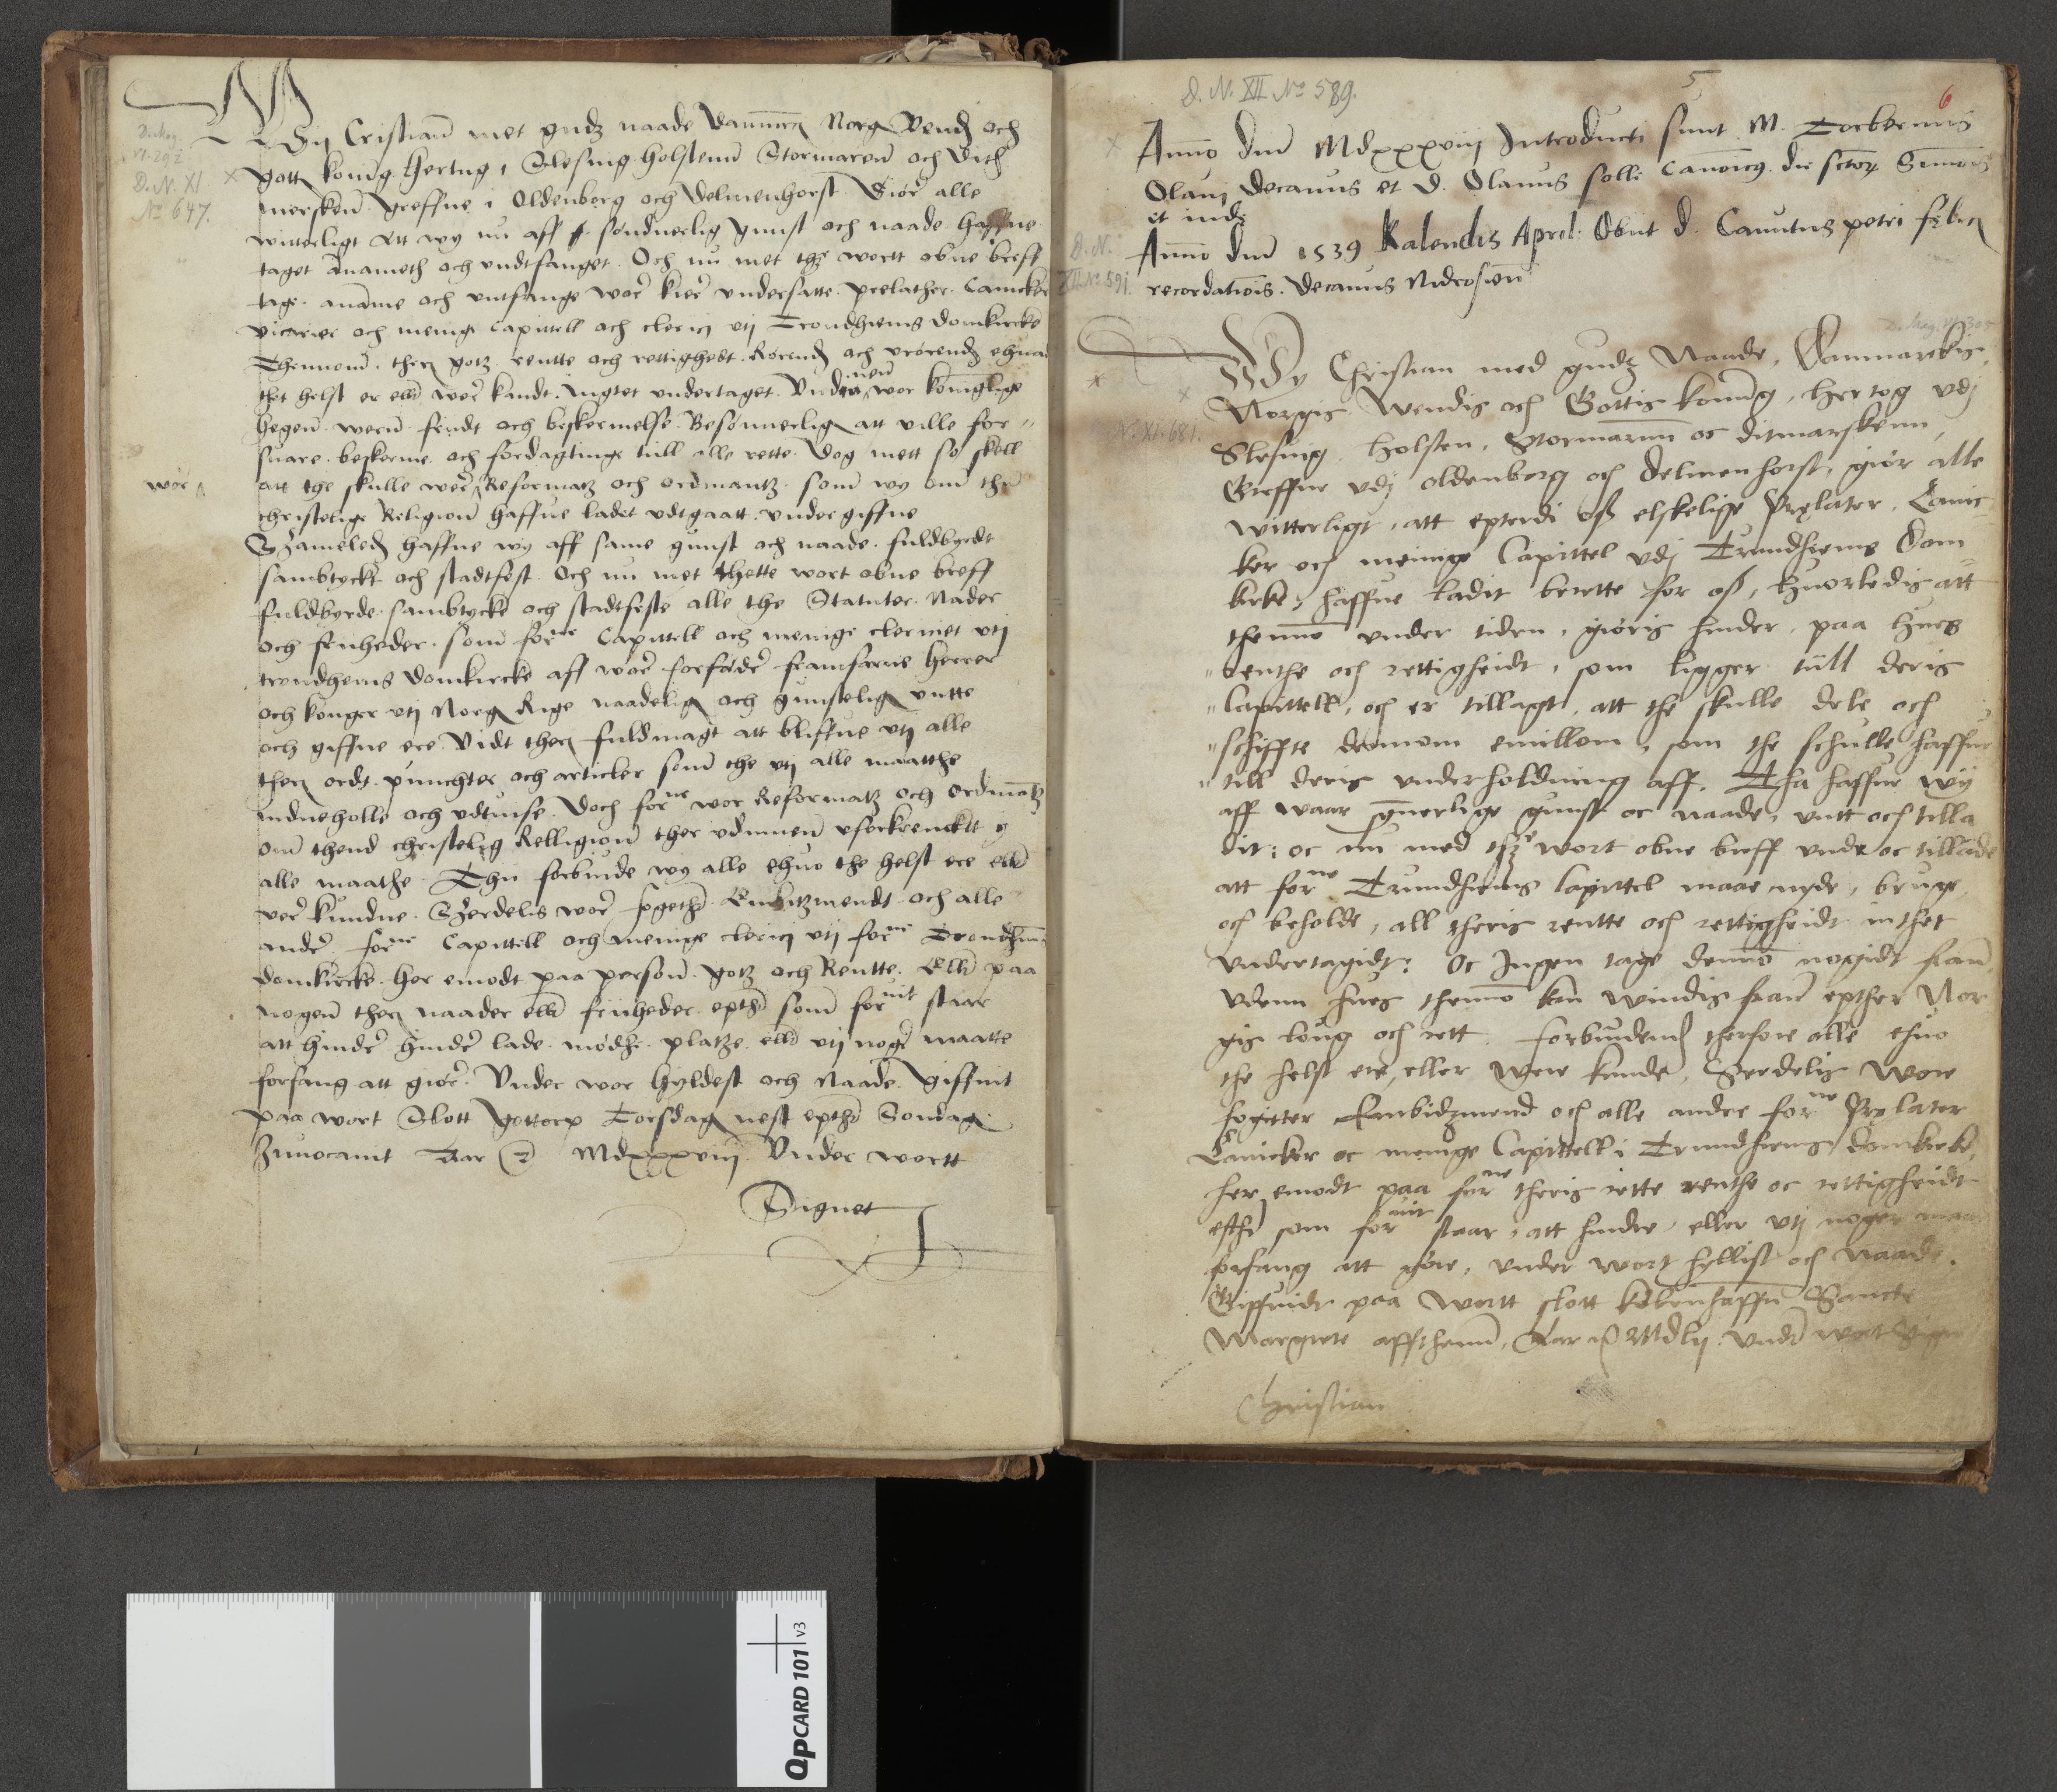 D. Mag.
VI. 292
D. N. XI
No 647.
Wij Cristiann met gudz naade Danmarcks Norgs Vends och
gotts konnig. Hertug i Slesuig Holstenn Stormarenn och Dith
mersken. Greffue i Oldenborg och Delmenhorst. Giøre alle
witterligt Att wy nu aff sønduerlig gunst och naade haffue
taget Anameth och vndtfanget. Och nu met thz wortt obne breff
tage. aname och vntfange wore kiere vndersatte. prelather. Canicker
vicarier och menige Capittell och clerici vtj Trondhiems domkircke
Thennom. thers gotz rentte och rettighedt. Rørends och vrørends ehuad
thet helst er elle were kandt. Ingtet vndertaget. Vnder wor konniglige
hegenn. wern. fridt och beskermelse. Besønnerlig att ville for
suare. beskerme. och fordagtinge till alle rette. Dog mett so skell
att the skulle were Reformatz och ordinantz. som wy om then
wor
christelige Religion haffue ladet vdtgaatt. vnder giffne
Szameleds haffue wy aff same gunst och naade. fuldbyrdt
sambtyckt och stadtfest. Och nu met thette wort obne breff
fuldbyrde. sambtycke och stadtfeste alle the Statuter. Nader
och friheder. som forne Capittell och menige clericiet vtj
trondhems domkircke aff wore forfædre framfarne herrer
och konger vtj Norgs Rige naadelig och gunstelig vntte
och giffne ere. Vidt thers fuldmagt att bliffue vtj alle
thers ordt. punchter och articler som the vtj alle maatthe
indneholle och vdtuise. Doch forne wor Reformatz och Ordinantz
om thend christelig Relligion ther vdinnen vforkrencktt y
alle maathe. Thii forbiude wy alle ehuo the helst ere elle
vere kunne. Szerdelis wore fogethe. Embitzmendt och alle
andre forne Capittell och menige clerici vtj forne Trondhiems
domkircke. her emodt paa person. gotz och Rentte. Elle paa
nogen thers naader elle friiheder epthr som foruit staar
att hindre hindre lade. mødhe. platze. elle vtj noger maatte
forfang att giøre. Vnder wor hyldest och Naade. Giffuit
paa wort Slott Gottorp Torsdag nest epthr Sondag
Inuocauit Aar MDxxxviij Vnder wortt
Signet
D. N. XII No 589.
5
6
Anno dni MDxxxviij Introducti sunt M. Torbernus
Olaui decanus et D. Olauus solli Canonicus. die sctorum Simonis
et iude
D. N.
XII No 591.
Anno dni 1539 Kalendis April. Obiit d. Canutus petri felicis
recordationis. Decanus Nidrosien
D. Mag. VI. 305
N. XI. 681.
Wy Christian med gudz Naade, Danmarckis,
Norgis Wendis och Gottis konnig, hertog vdj
Slesuig, Holsten, Stormarnn oc Ditmarskenn,
Greffue vdj Oldenborg och Delmenhorst, giør alle
witterligt, att epterdi oss elskelige Prelater, Canic
ker och meinige Capittel vdj Trundhiems Dom
kirke, haffue ladit berette for oss, huorledis att
thennom vnder tiden, giøris hinder, paa hues
renthe och rettigheidt, som ligger till deris
Capittell, och er tillagt, att the skulle dele och
schiffte dennom emillom, som the schulle haffue
till deris vnderholdning aff. Tha haffue wij
aff waar synnerlige gunst oc naade, vntt och tilla
dit: oc nu med thz wort obne breff vnde oc tillade
att forne Trundhiems Capittel maae nyde, bruge
och beholde, all theris rentte och rettigheidt inthet
vndertagidt: Oc Ingen tage dennom nogidt fran,
vdenn hues thennom kan windis fran epther Nor
gis loug och rett. Forbiudends therfore alle ehuo
the helst ere, eller were kunde, Serdelis wore
fogitter Embidzmend och alle andre forne Prelater
Canicker oc menige Capittell i Trundhiems domkirke,
her emodt paa forne theris rette renthe oc rettigheidt
efther som foruit staar, att hindre, eller vtj noger maade
forfang att gøre, vnder wort hyllist och Naade.
Giffuidt paa wortt slott københaffn Sancte
Margrete afftthenn, Aar MDlij. Vnder wort Signet
Christian